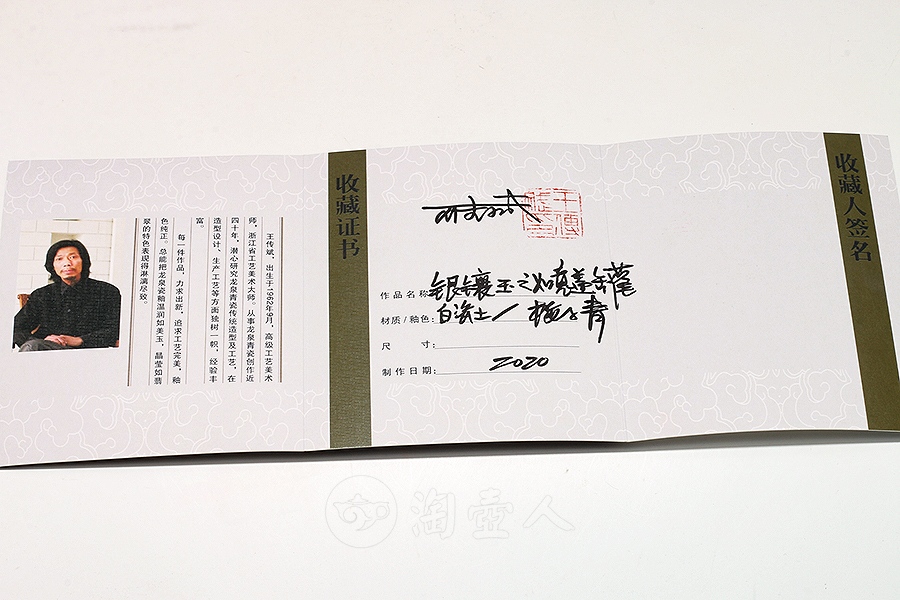 王传斌，出生于1962年9月，高级工艺美术
师，浙江省工艺美术大师。从事龙泉青瓷创作近
四十年，潜心研究龙泉青瓷传统造型及工艺，在
造型设计、生产工艺等方面独树一帜，经验丰
富。
每一件作品，力求出新，追求工艺完美，釉
色纯正。总能把龙泉瓷釉温润如美玉，晶莹如翡
翠的特色表现得淋漓尽致。
收藏证书
作品名称 银镶玉之如意盖罐
材质/釉色: 白瓷土/梅子青
尺 寸:
制作日期: 2020
收藏人签名
淘壶人